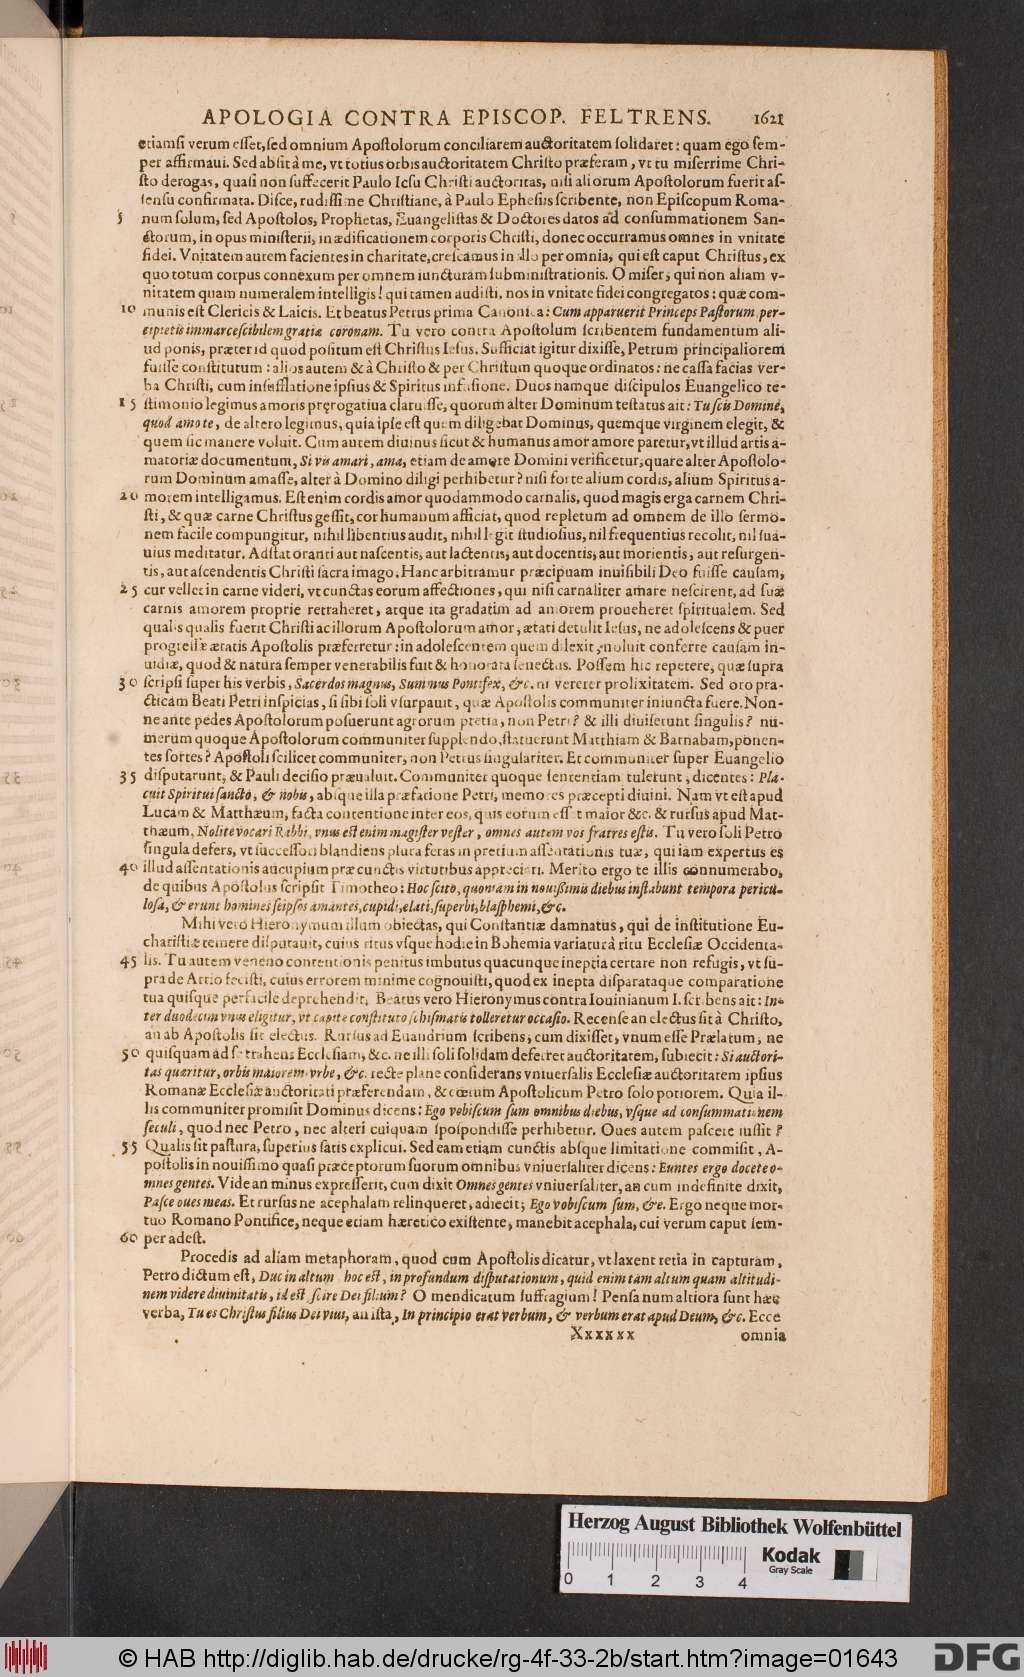 APOLOGIA CONTRA EPISCOP. FELTRENS. 1621
etiamsi verum esset, sed omnium Apostolorum conciliarem auctoritatem solidaret: quam ego sem-
per affirmaui. Sed absit à me, vt totius orbis auctoritatem Christo præferam, vt tu miserrime Chri-
sto derogas, quasi non suffecerit Paulo Iesu Christi auctoritas, nisi aliorum Apostolorum fuerit as-
sensu confirmata. Disce, rudissime Christiane, à Paulo Ephesiis scribente, non Episcopum Roma-
5 num solum, sed Apostolos, Prophetas, Euangelistas & Doctores datos ad consummationem San-
ctorum, in opus ministerii, in ædificationem corporis Christi, donec occurramus omnes in vnitate
fidei. Vnitatem autem facientes in charitate, crescamus in illo per omnia, qui est caput Christus, ex
quo totum corpus connexum per omnem iuncturam subministrationis. O miser, qui non aliam v-
nitatem quam numeralem intelligis! qui tamen audisti, nos in vnitate fidei congregatos: quæ com-
10 munis est Clericis & Laicis. Et beatus Petrus prima Canonica: Cum apparuerit Princeps Pastorum, per-
cipietis immarcescibilem gratiæ coronam. Tu vero contra Apostolum scribentem fundamentum ali-
ud ponis, præter id quod positum est Christus Iesus. Sufficiat igitur dixisse, Petrum principaliorem
fuisse constitutum: alios autem & à Christo & per Christum quoque ordinatos: ne cassa facias ver-
ba Christi, cum insufflatione ipsius & Spiritus infusione. Duos namque discipulos Euangelico te-
15 stimonio legimus amoris prerogatiua claruisse, quorum alter Dominum testatus ait: Tu scis Domine,
quod amo te, de altero legimus, quia ipse est quem diligebat Dominus, quemque virginem elegit, &
quem sic manere voluit. Cum autem diuinus sicut & humanus amor amore paretur, vt illud artis a-
matoriæ documentum, Si vis amari, ama, etiam de amore Domini verificetur, quare alter Apostolo-
rum Dominum amasse, alter à Domino diligi perhibetur? nisi forte alium cordis, alium Spiritus a-
20 morem intelligamus. Est enim cordis amor quodammodo carnalis, quod magis erga carnem Chri-
sti, & quæ carne Christus gessit, cor humanum afficiat, quod repletum ad omnem de illo sermo-
nem facile compungitur, nihil libentius audit, nihil legit studiosius, nil frequentius recolit, nil sua-
uius meditatur. Adstat oranti aut nascentis, aut lactentis, aut docentis, aut morientis, aut resurgen-
tis, aut ascendentis Christi sacra imago. Hanc arbitramur præcipuam inuisibili Deo fuisse causam,
25 cur vellet in carne videri, vt cunctas eorum affectiones, qui nisi carnaliter amare nescirent, ad suæ
carnis amorem proprie retraheret, atque ita gradatim ad amorem proueheret spiritualem. Sed
qualis qualis fuerit Christi ac illorum Apostolorum amor, ætati detulit Iesus, ne adolescens & puer
progressæ ætatis Apostolis præferretur: in adolescentem quem dilexit, noluit conferre causam in-
uidiæ, quod & natura semper venerabilis fuit & honorata senectus. Possem hic repetere, quæ supra
30 scripsi super his verbis, Sacerdos magnus, Summus Pontifex, &c. ni vererer prolixitatem. Sed oro pra-
cticam Beati Petri inspicias, si sibi soli vsurpauit, quæ Apostolis communiter iniuncta fuere. Non-
ne ante pedes Apostolorum posuerunt agrorum pretia, non Petri? & illi diuiserunt singulis? nu-
merum quoque Apostolorum communiter supplendo, statuerunt Matthiam & Barnabam, ponen-
tes sortes? Apostoli scilicet communiter, non Petrus singulariter. Et communiter super Euangelio
35 disputarunt, & Pauli decisio præualuit. Communiter quoque sententiam tulerunt, dicentes: Pla-
cuit Spiritui sancto, & nobis, absque illa præfatione Petri, memores præcepti diuini. Nam vt est apud
Lucam & Matthæum, facta contentione inter eos, quis eorum esset maior &c. & rursus apud Mat-
thæum, Nolite vocari Rabbi, vnus est enim magister vester, omnes autem vos fratres estis. Tu vero soli Petro
singula defers, vt successori blandiens plura feras in pretium assentationis tuæ, qui iam expertus es
40 illud assentationis aucupium præ cunctis virtutibus appreciari. Merito ergo te illis connumerabo,
de quibus Apostolus scripsit Timotheo: Hoc scito, quoniam in nouissimis diebus instabunt tempora pericu-
losa, & erunt homines seipsos amantes, cupidi, elati, superbi, blasphemi, &c.
Mihi vero Hieronymum illum obiectas, qui Constantiæ damnatus, qui de institutione Eu-
charistiæ temere disputauit, cuius ritus vsque hodie in Bohemia variatur à ritu Ecclesiæ Occidenta-
45 lis. Tu autem veneno contentionis penitus imbutus quacunque ineptia certare non refugis, vt su-
pra de Arrio fecisti, cuius errorem minime cognouisti, quod ex inepta disparataque comparatione
tua quisque perfacile deprehendit. Beatus vero Hieronymus contra Iouinianum I. scribens ait: In-
ter duodecim vnus eligitur, vt capite constituto schismatis tolleretur occasio. Recense an electus sit à Christo,
an ab Apostolis sit electus. Rursus ad Euandrium scribens, cum dixisset, vnum esse Prælatum, ne
50 quisquam ad se trahens Ecclesiam, &c. ne illi soli solidam deferret auctoritatem, subiecit: Si auctori-
tas quæritur, orbis maiorem vrbe, &c. recte plane considerans vniuersalis Ecclesiæ auctoritatem ipsius
Romanæ Ecclesiæ auctoritati præferendam, & cœtum Apostolicum Petro solo potiorem. Quia il-
lis communiter promisit Dominus dicens: Ego vobiscum sum omnibus diebus, vsque ad consummationem
seculi, quod nec Petro, nec alteri cuiquam spospondisse perhibetur. Oues autem pascere iussit?
55 Qualis sit pastura, superius satis explicui. Sed eam etiam cunctis absque limitatione commisit, A-
postolis in nouissimo quasi præceptorum suorum omnibus vniuersaliter dicens: Euntes ergo docete o-
mnes gentes. Vide an minus expresserit, cum dixit Omnes gentes vniuersaliter, an cum indefinite dixit,
Pasce oues meas. Et rursus ne acephalam relinqueret, adiecit; Ego vobiscum sum, &c. Ergo neque mor-
tuo Romano Pontifice, neque etiam hæretico existente, manebit acephala, cui verum caput sem-
60 per adest.
Procedis ad aliam metaphoram, quod cum Apostolis dicatur, vt laxent retia in capturam,
Petro dictum est, Duc in altum hoc est, in profundum disputationum, quid enim tam altum quam altitudi-
nem videre diuinitatis, id est scire Dei filium? O mendicatum suffragium! Pensa num altiora sunt hæc
verba, Tu es Christus filius Dei viui, an ista, In principio erat verbum, & verbum erat apud Deum, &c. Ecce
Xxxxxx omnia
Herzog August Bibliothek Wolfenbüttel
Kodak
Gray Scale
0 1 2 3 4
© HAB http://diglib.hab.de/drucke/rg-4f-33-2b/start.htm?image=01643
DFG